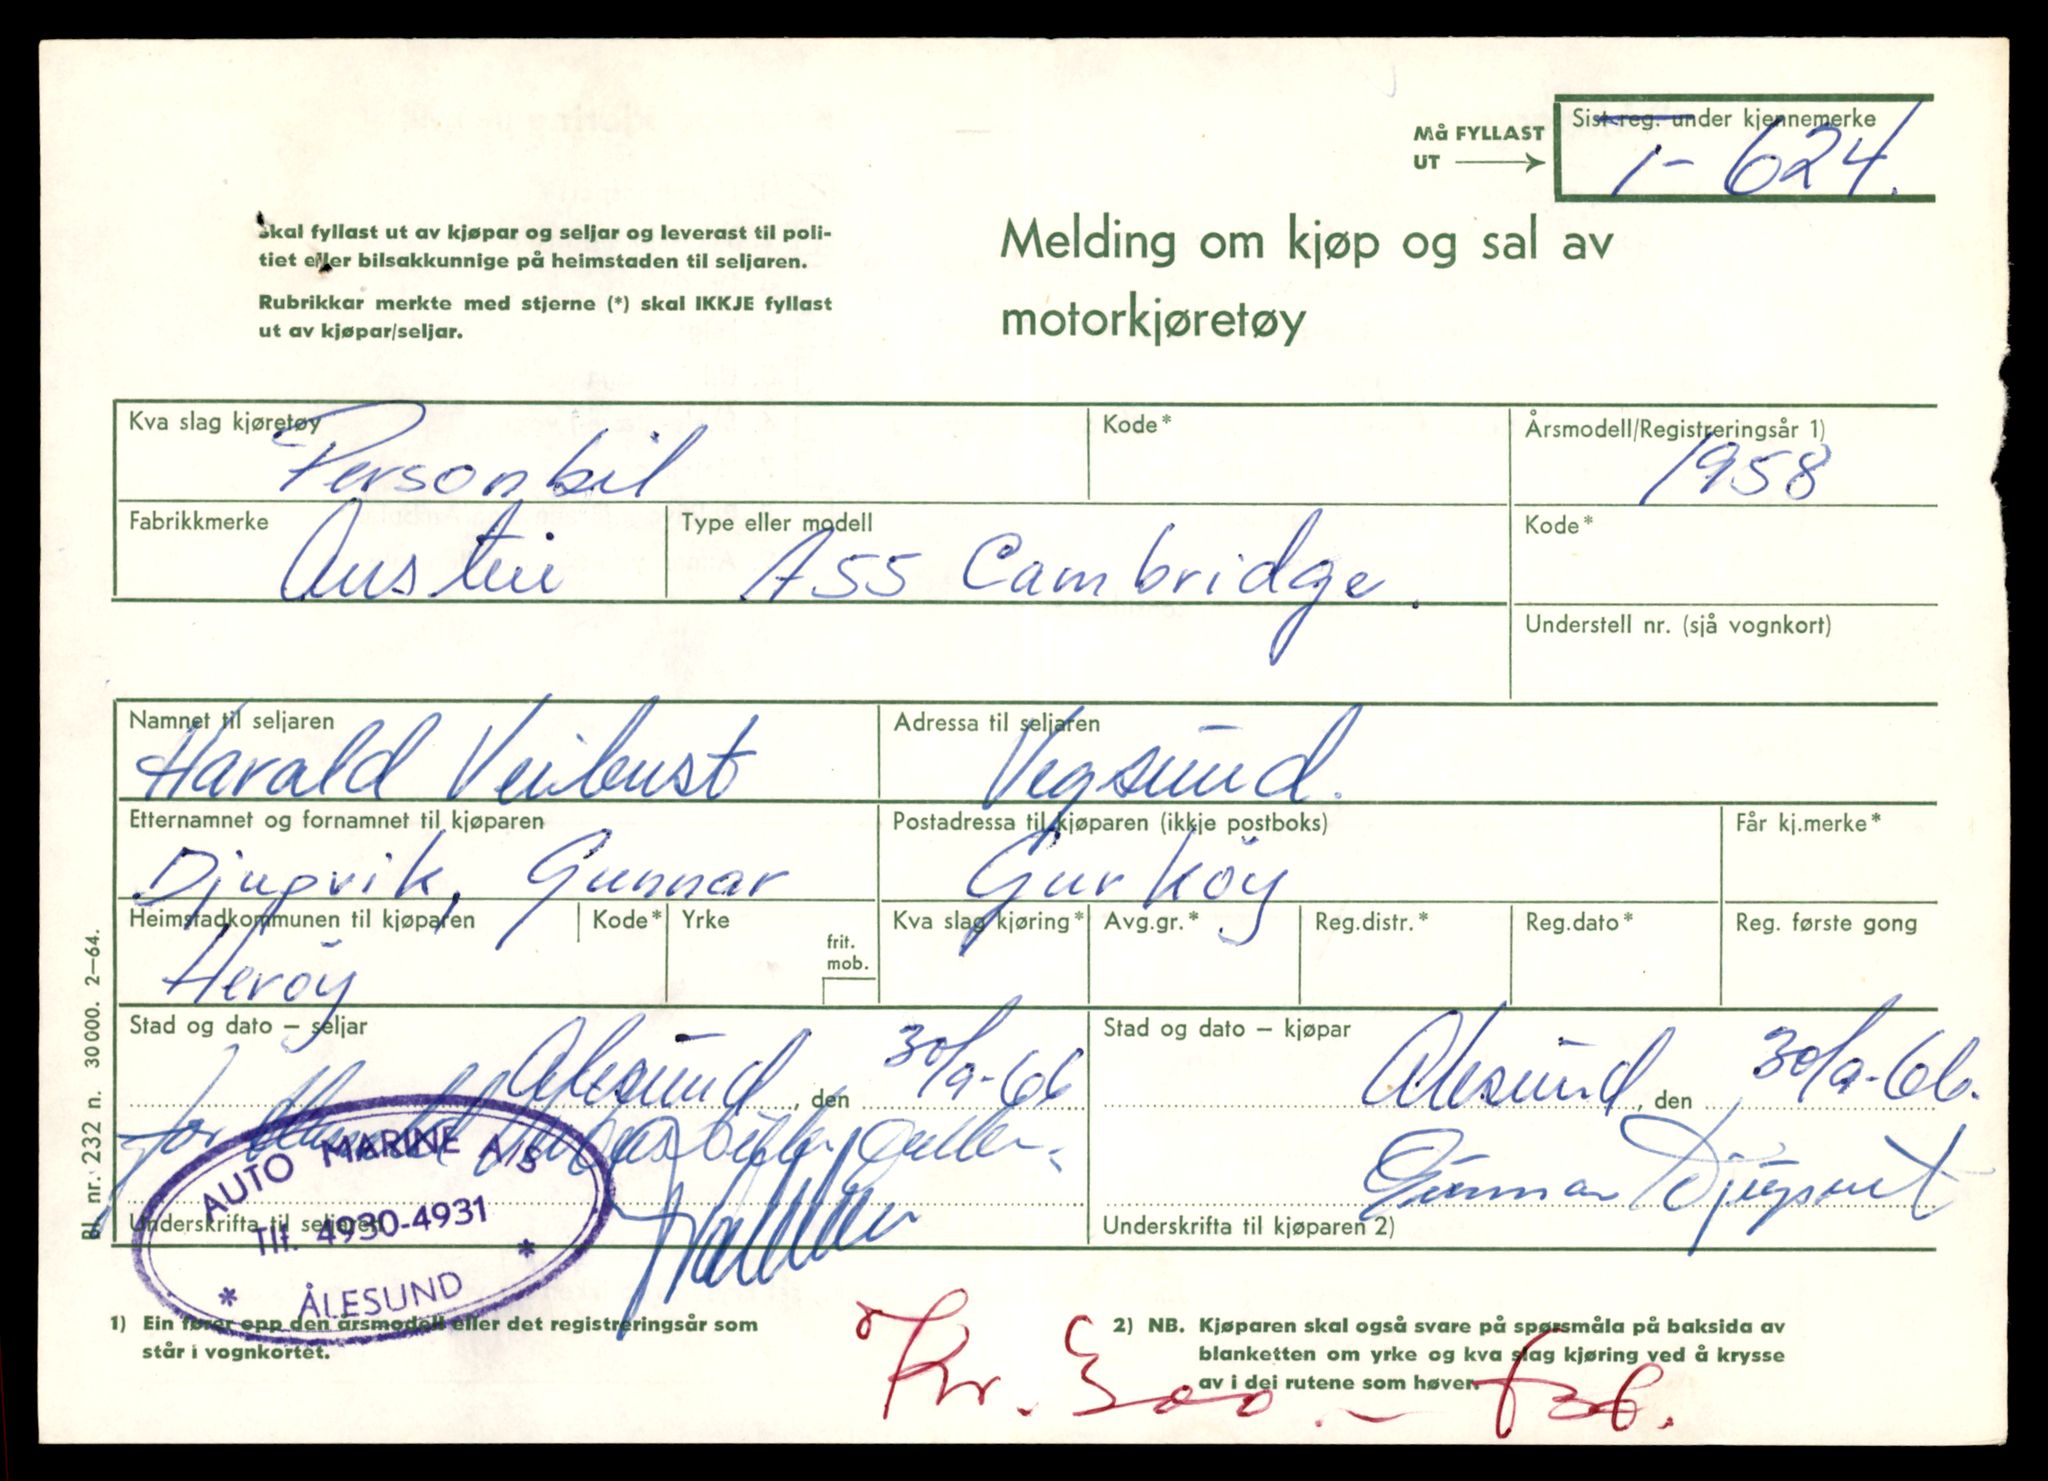 Må FYLLAST
UT
Sist reg. under kjennemerke
1-624.
Skal fyllast ut av kjøpar og seljar og leverast til poli-
tiet eller bilsakkunnige på heimstaden til seljaren.
Rubrikkar merkte med stjerne (*) skal IKKJE fyllast
ut av kjøpar/seljar.
Melding om kjøp og sal av
motorkjøretøy
Kva slag kjøretøy
Personbil
Kode*
Årsmodell/Registreringsår 1)
1958
Fabrikkmerke
Austin
Type eller modell
A55 Cambridge.
Kode*
Understell nr. (sjå vognkort)
Namnet til seljaren
Harald Veibust
Adressa til seljaren
Vegsund.
Etternamnet og fornamnet til kjøparen
Djupvik, Gunnar
Postadressa til kjøparen (ikkje postboks)
Gurköy
Får kj.merke*
Heimstadkommunen til kjøparen
Heröy
Kode*
Yrke
frit.
mob.
Kva slag kjøring*
Avg.gr.*
Reg.distr.*
Reg.dato*
Reg. første gong
Stad og dato – seljar
Alesund, den 30/9-66
for
Underskrifta til seljaren
AUTO MARINE A/S
Tlf. 4930-4931
* ÅLESUND *
Stad og dato – kjøpar
Alesund, den 30/9-66.
Gunnar Djupvik
Underskrifta til kjøparen 2)
Bl. nr. 232 n. 30 000. 2–64.
1) Ein fører opp den årsmodell eller det registreringsår som
står i vognkortet.
2) NB. Kjøparen skal også svare på spørsmåla på baksida av
blanketten om yrke og kva slag kjøring ved å krysse
av i dei rutene som høver.
Kr. 300.-